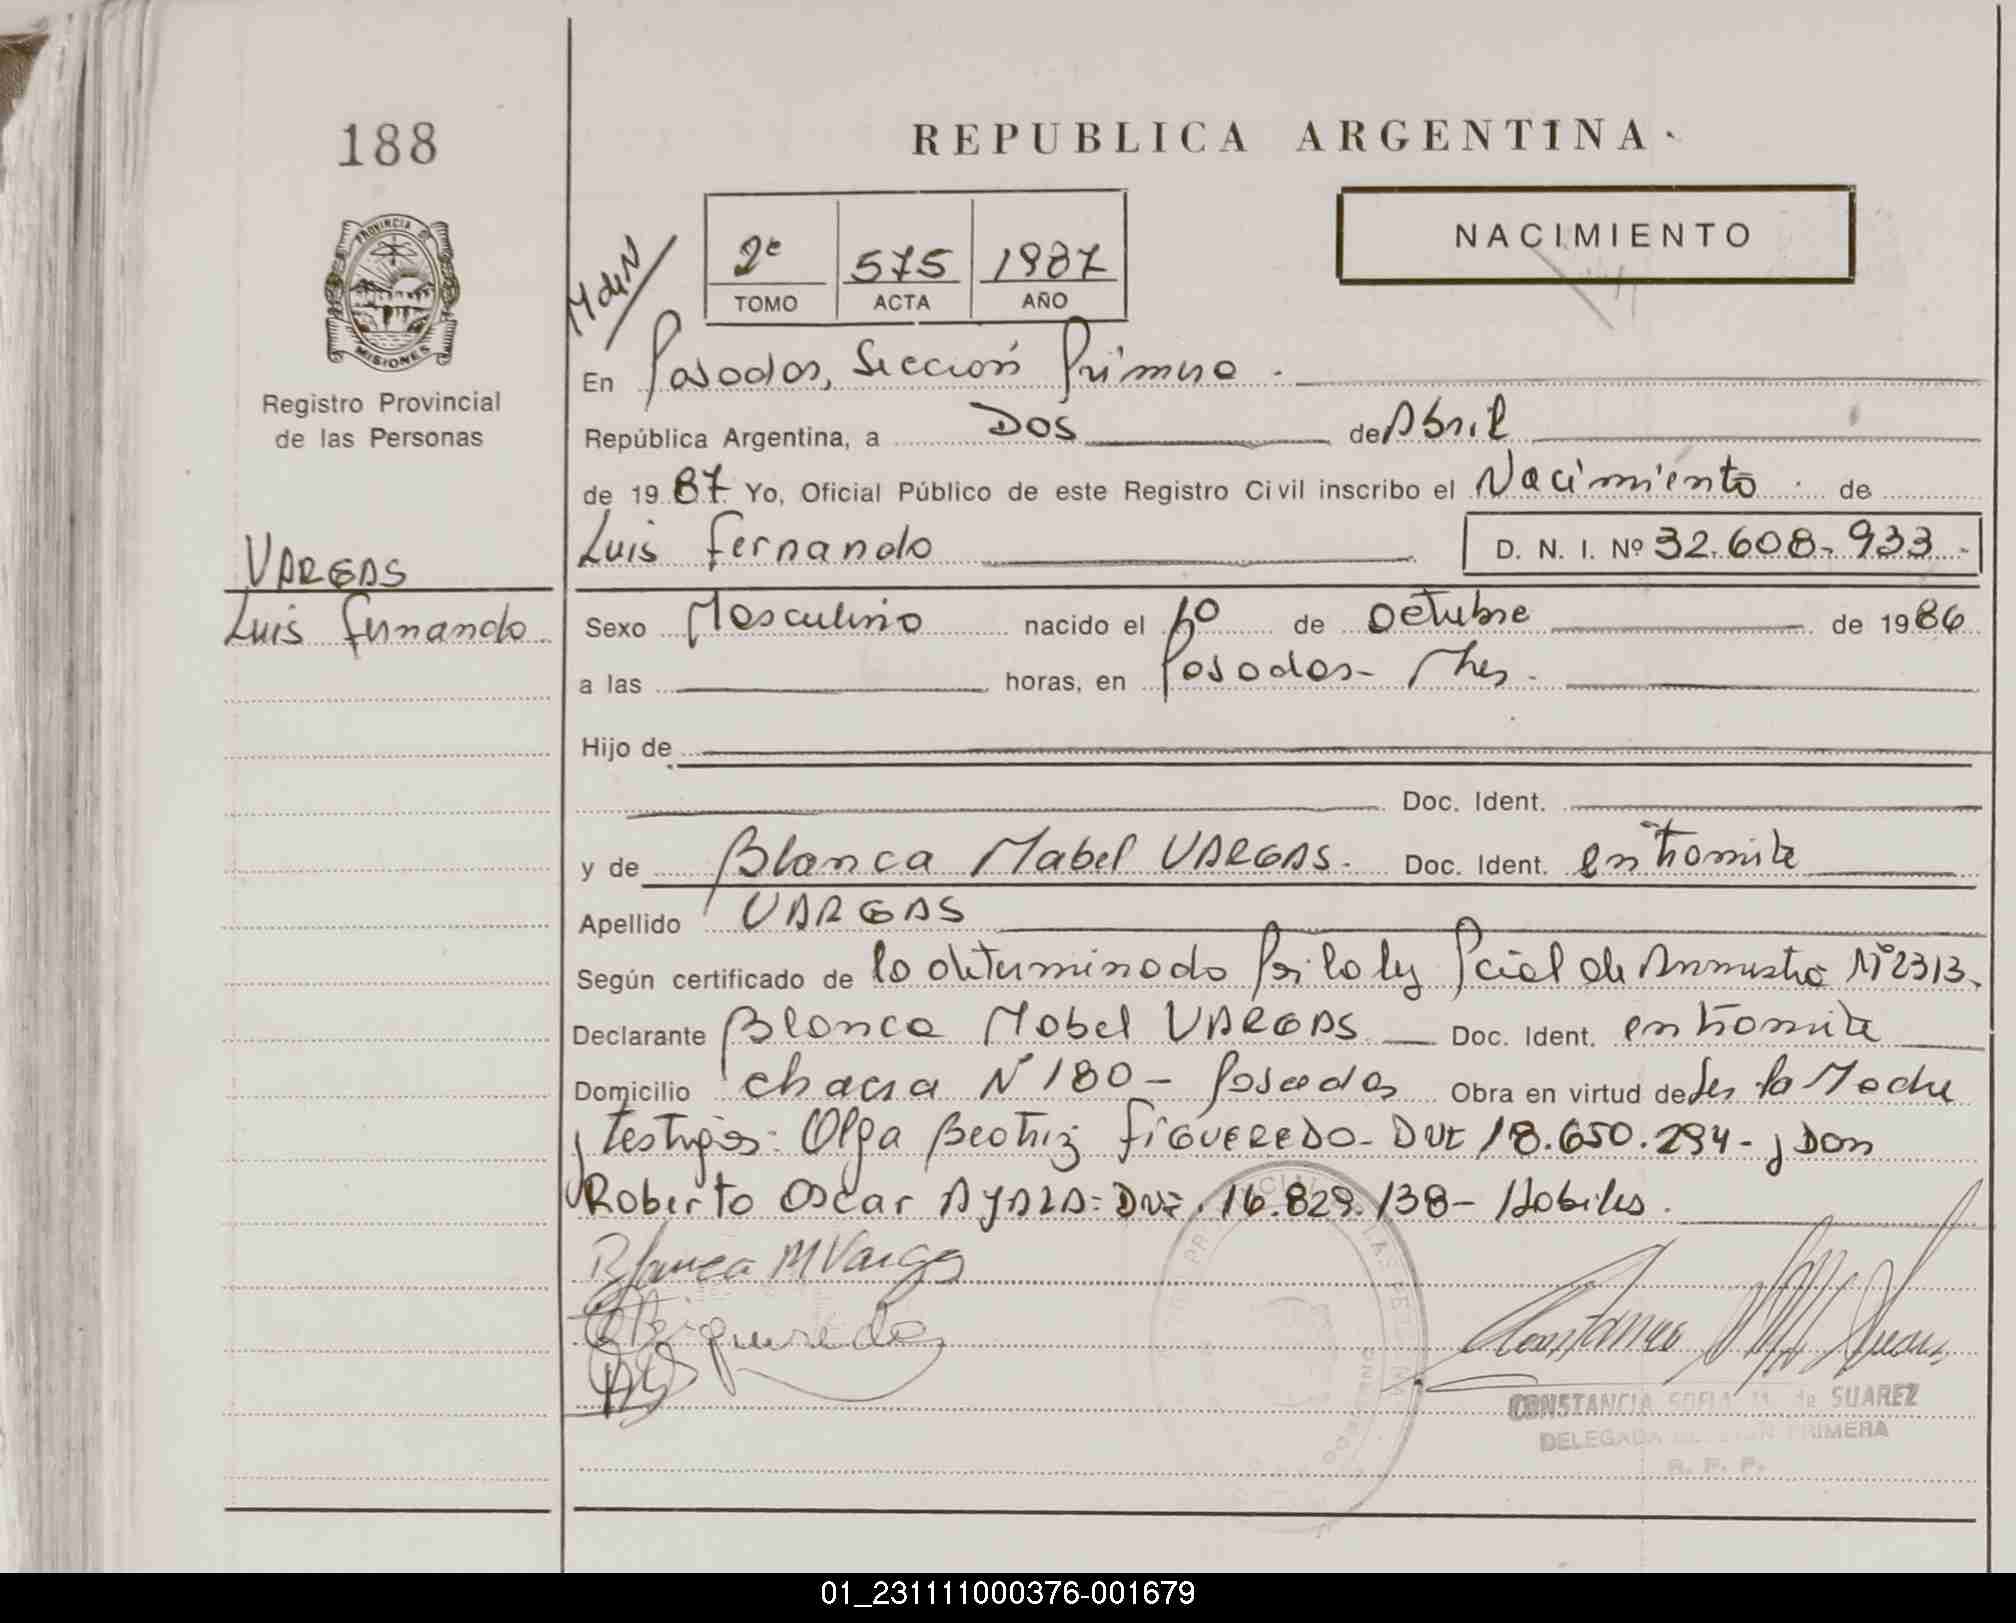 188
REPUBLICA ARGENTINA
PROVINCIA DE
MISIONES
Registro Provincial
de las Personas
M de N
2º 575 1987
TOMO ACTA AÑO
NACIMIENTO
En Posadas, Sección Primera.
República Argentina, a Dos de Abril
de 1987 Yo, Oficial Público de este Registro Civil inscribo el Nacimiento de
Luis Fernando D. N. I. Nº 32.608.933-
VARGAS
Luis Fernando
Sexo Masculino nacido el 1º de Octubre de 1986
a las horas, en Posadas- Mnes.
Hijo de
Doc. Ident.
y de Blanca Mabel VARGAS. Doc. Ident. en tramite
Apellido VARGAS
Según certificado de lo determinado por la ley Pcial de Amnistia Nº 2313.
Declarante Blanca Mabel VARGAS Doc. Ident. en tramite
Domicilio chacra Nº 180 - Posadas Obra en virtud de ser la Madre
y testigos: Olga Beatriz FIGUEREDO- DNI 18.650.294- y Don
Roberto Oscar AYALA: DNI. 16.829.138- Habiles.
Blanca M Vargas
CONSTANCIA SOFIA M. de SUAREZ
DELEGADA SECCION PRIMERA
R. P. P.
01_231111000376-001679